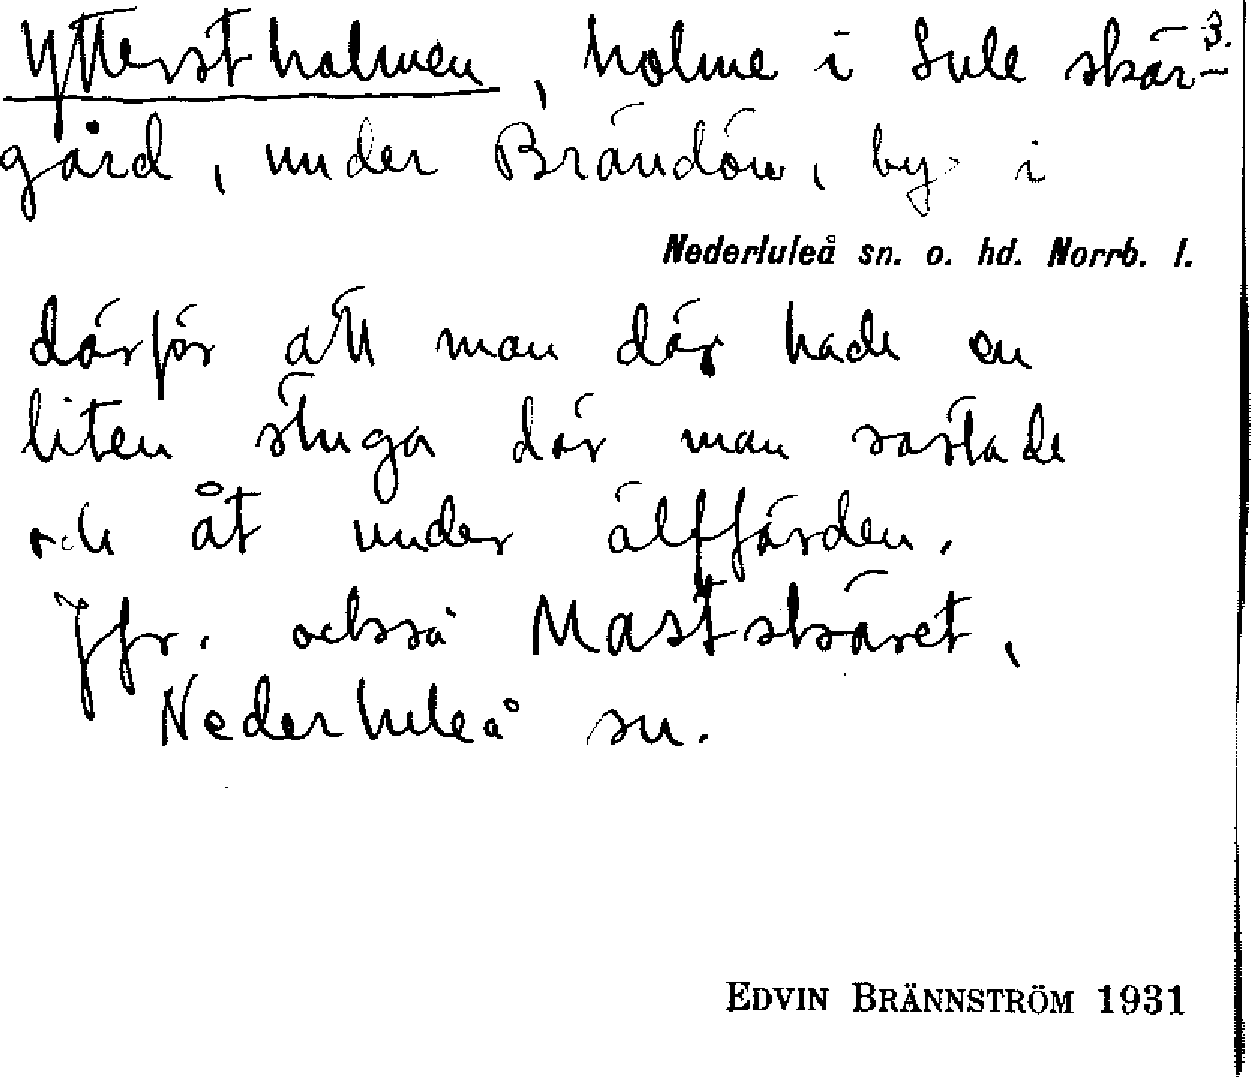 Ytterstholmen, holme i Lule skär- 3.
gård, under Brändön, by i
Nederluleå sn. o. hd. Norrb. l.
därför att man där hade en
liten stuga där man rastade
och åt under älffärden.
Jfr. också Mastskäret,
Nederluleå sn.
EDVIN BRÄNNSTRÖM 1931